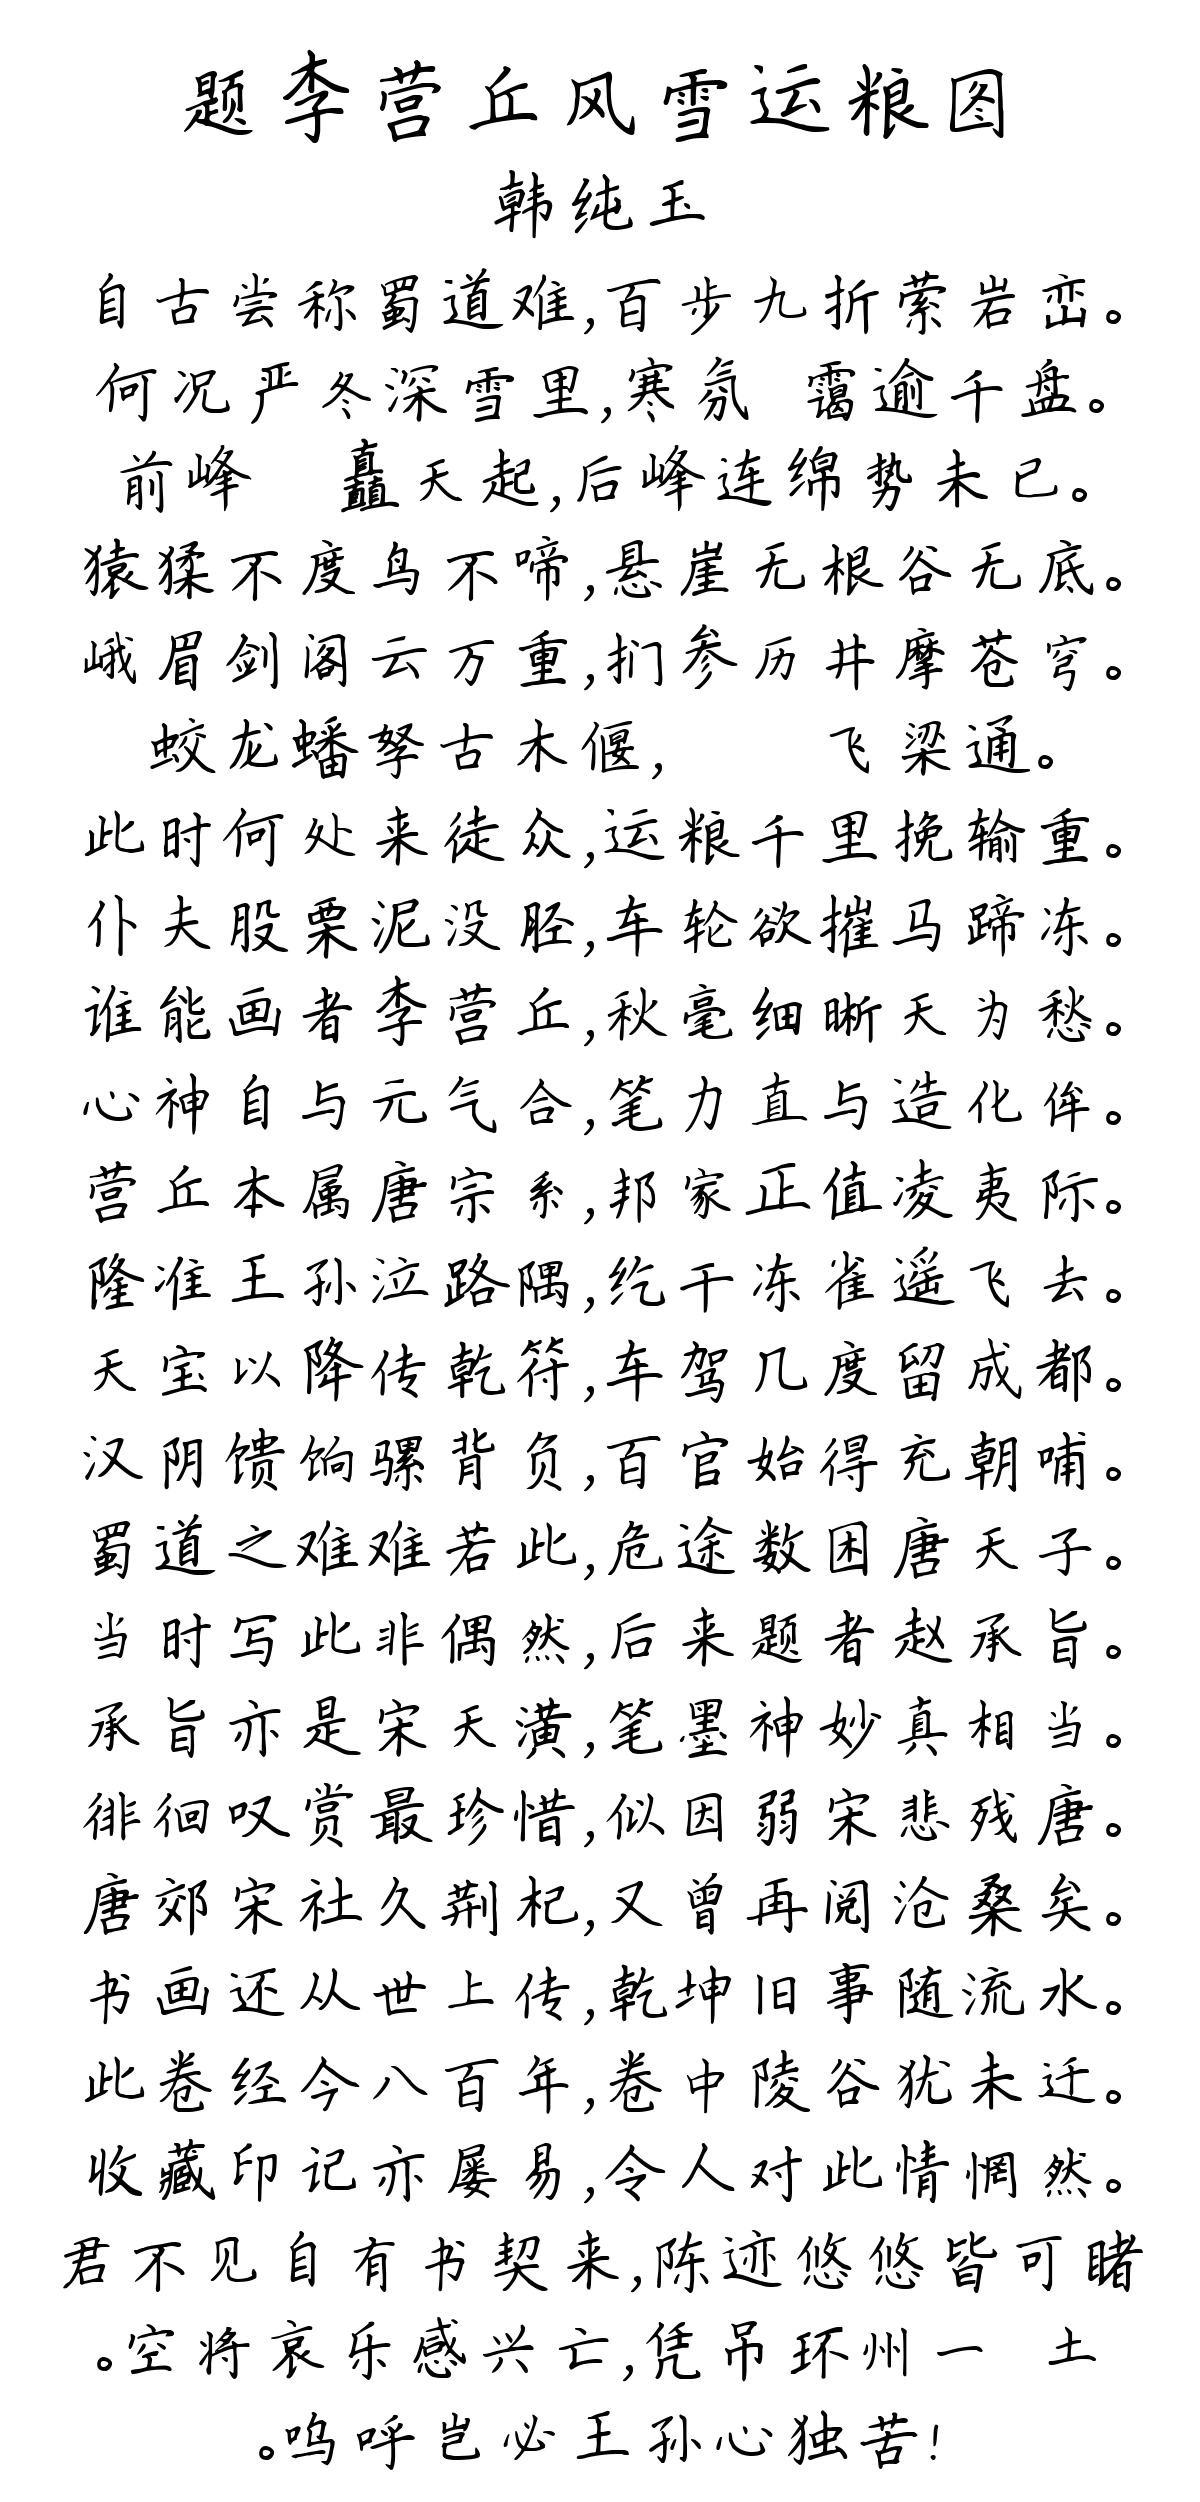 题李营丘风雪运粮图
韩纯玉
自古尝称蜀道难,百步九折萦岩峦。
何况严冬深雪里,寒氛 霭逾千盘。
前峰 矗天起,后峰连绵势未已。
猿猱不度鸟不啼,悬崖无根谷无底。
峨眉剑阁云万重,扪参历井摩苍穹。
蛟龙蟠拏古木偃, 飞梁通。
此时何处来徒众,运粮千里挽输重。
仆夫股栗泥没胫,车轮欲摧马蹄冻。
谁能画者李营丘,秋毫细晰天为愁。
心神自与元气合,笔力直与造化侔。
营丘本属唐宗系,邦家正值凌夷际。
隆准王孙泣路隅,纥干冻雀遥飞去。
天宝以降传乾符,车驾几度留成都。
汉阴馈饷骡背负,百官始得充朝哺。
蜀道之难难若此,危途数困唐天子。
当时写此非偶然,后来题者赵承旨。
承旨亦是宋天潢,笔墨神妙真相当。
徘徊叹赏最珍惜,似因弱宋悲残唐。
唐郊宋社久荆杞,又曾再阅沧桑矣。
书画还从世上传,乾坤旧事随流水。
此卷经今八百年,卷中陵谷犹未迁。
收藏印记亦屡易,令人对此情惘然。
君不见自有书契来,陈迹悠悠皆可睹
。空将哀乐感兴亡,凭吊环州一 土
。呜呼岂必王孙心独苦!